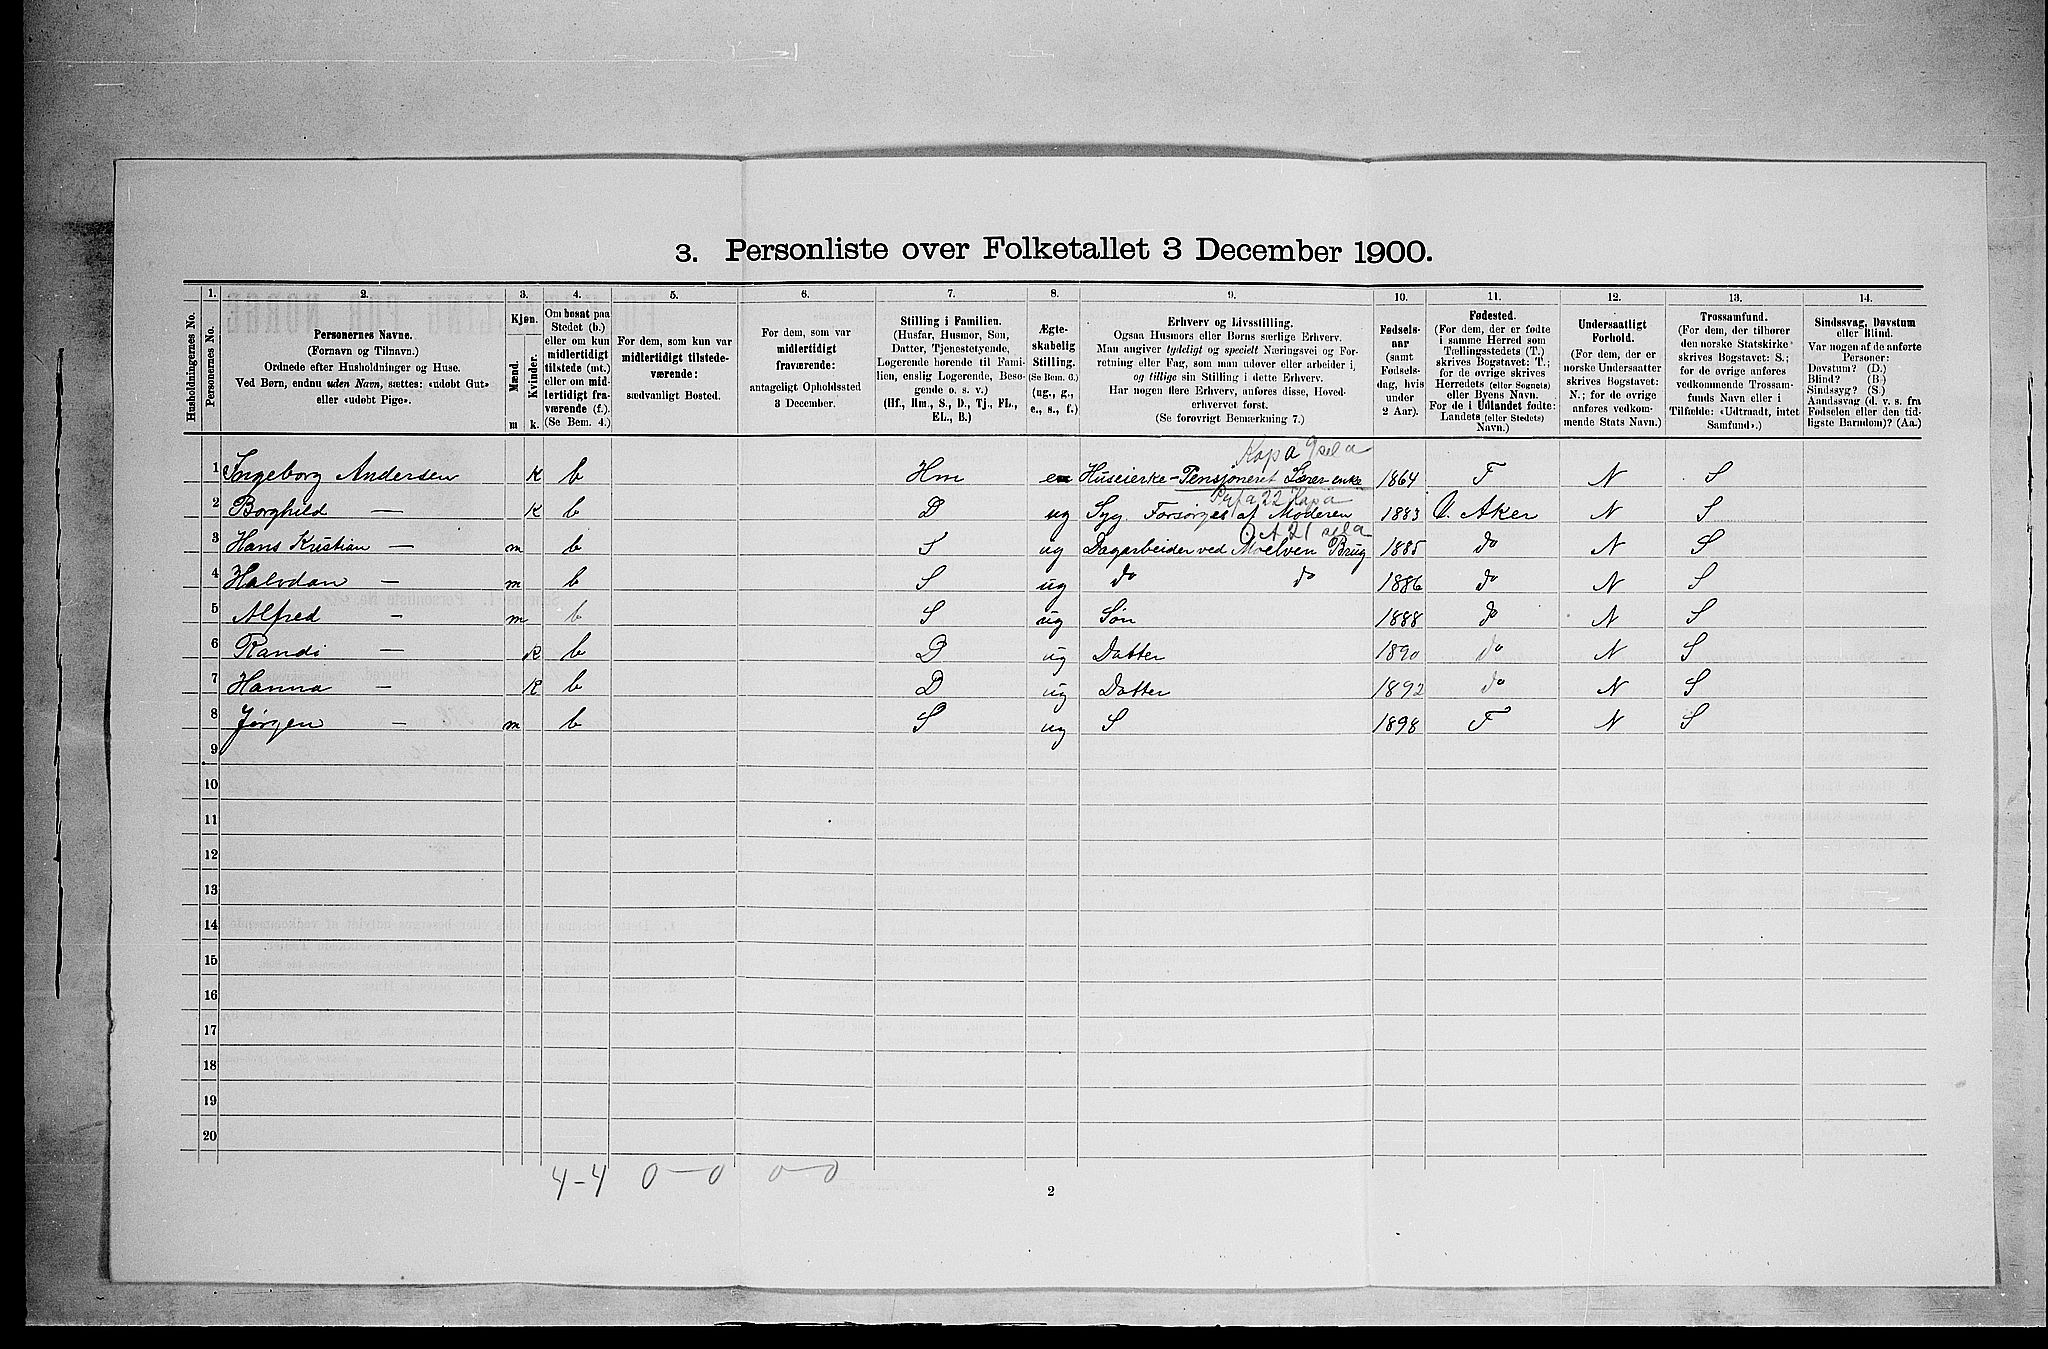 3. Personliste over Folketallet 3 December 1900.
1. 2. 3. 4. 5. 6. 7. 8. 9. 10. 11. 12. 13. 14.
Husholdningernes No.
Personernes No.
Personernes Navne.
(Fornavn og Tilnavn.)
Ordnede efter Husholdninger og Huse.
Ved Børn, endnu uden Navn, sættes: «udøbt Gut»
eller «udøbt Pige».
Kjøn.
Mænd.
Kvinder.
m k.
Om bosat paa
Stedet (b.)
eller om kun
midlertidigt
tilstede (mt.)
eller om mid-
lertidigt fra-
værende (f.)
(Se Bem. 4.)
For dem, som kun var
midlertidigt tilstede-
værende:
sædvanligt Bosted.
For dem, som var
midlertidigt
fraværende:
antageligt Opholdssted
3 December.
Stilling i Familien.
(Husfar, Husmor, Søn,
Datter, Tjenestetyende,
Logerende hørende til Fami-
lien, enslig Logerende, Besø-
gende o. s. v.)
(Hf., Hm., S., D., Tj., FL.,
EL., B.)
Ægte-
skabelig
Stilling.
(Se Bem. 6.)
(ug., g.,
e., s., f.)
Erhverv og Livsstilling.
Ogsaa Husmors eller Børns særlige Erhverv.
Man angiver tydeligt og specielt Næringsvei og For-
retning eller Fag, som man udøver eller arbeider i,
og tillige sin Stilling i dette Erhverv.
Har nogen flere Erhverv, anføres disse, Hoved-
erhvervet først.
(Se forøvrigt Bemærkning 7.)
Fødsels-
aar
(samt
Fødsels-
dag, hvis
under
2 Aar).
Fødested.
(For dem, der er fødte
i samme Herred som
Tællingsstedets (T.)
skrives Bogstavet: T.;
for de øvrige skrives
Herredets (eller Sognets)
eller Byens Navn.
For de i Udlandet fødte:
Landets (eller Stedets)
Navn.)
Undersaatligt
Forhold.
(For dem, der er
norske Undersaatter
skrives Bogstavet:
N.; for de øvrige
anføres vedkom-
mende Stats Navn.)
Trossamfund.
(For dem, der tilhører
den norske Statskirke
skrives Bogstavet: S.;
for de øvrige anføres
vedkommende Trossam-
funds Navn eller i
Tilfælde: «Udtraadt, intet
Samfund».)
Sindssvag, Døvstum
eller Blind.
Var nogen af de anførte
Personer:
Døvstum? (D.)
Blind? (B.)
Sindssyg? (S.)
Aandssvag (d. v. s. fra
Fødselen eller den tid-
ligste Barndom)? (Aa.)
Kapa
1 Ingeborg Andersen K b Hm en Huseierske - Pensioneret Lærer enke 1864 T N S
2 Borghild — K b D ug Syg. Forsørges af Moderen 1883 V. Aker N S
3 Hans Kristian — m b S ug Dagarbeider ved Moelven Brug 1885 do N S
4 Halvdan — m b S ug do do 1886 do N S
5 Alfred — m b S ug Søn 1888 do N S
6 Randi — K b D ug Datter 1890 do N S
7 Hanna — K b D ug Datter 1892 do N S
8 Jørgen — m b S ug S 1898 T N S
9
10
11
12
13
14
15
16
17
18
19
20
4-4 0-0 0-0
2